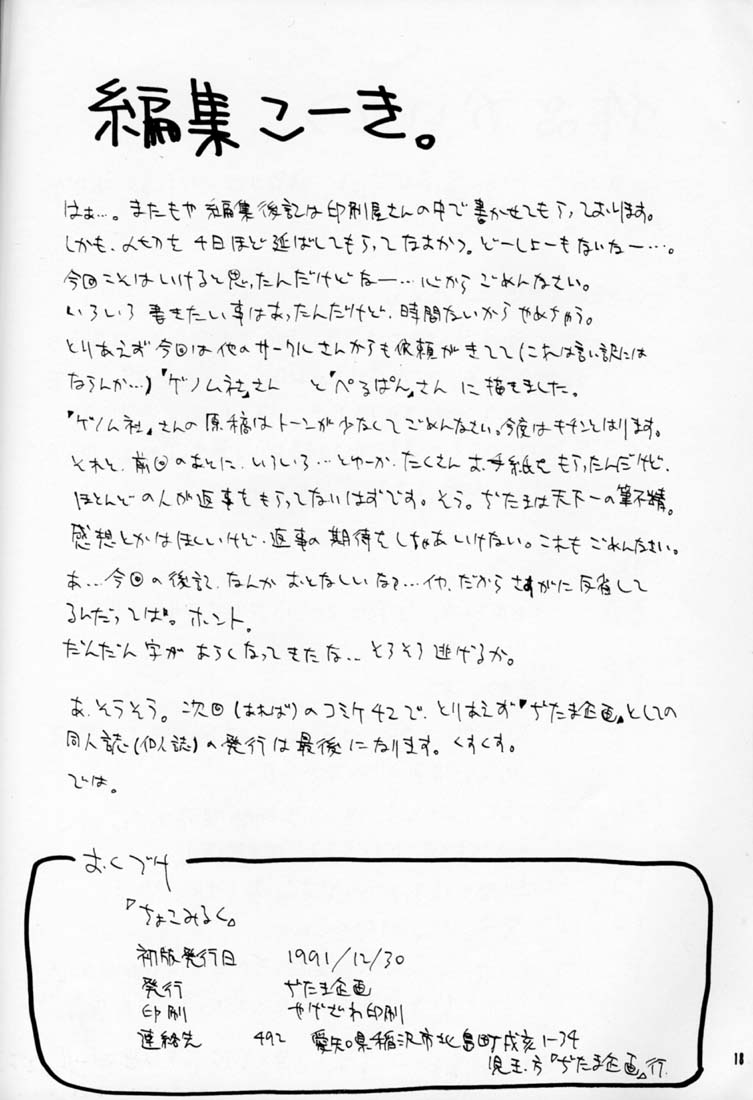 編集こーき。
はぁ…。またもや編集後記は印刷屋さんの中で書かせてもらっております。
しかも、〆切を4日ほど延ばしてもらってなおかつ。どーしょーもないなー…。
今回こそはいけると思ったんだけどなー…心からごめんなさい。
いろいろ書きたい事はあったんだけど、時間ないからやめちゃう。
とりあえず今回は他のサークルさんからも依頼がきてて(これは言い訳には
ならんか…)『ゲノム社』さん と『ぺるぱん』さん に描きました。
『ゲノム社』さんの原稿はトーンが少なくてごめんなさい。今度はキチンとはります。
それと、前回のあとに、いろいろ…とゆーか、たくさんお手紙をもらったんだけど、
ほとんどの人が返事をもらってないはずです。そう。ぢたまは天下一の筆不精。
感想とかはほしいけど、返事の期待をしちゃあいけない。これもごめんなさい。
あ…今回の後記、なんかおとなしいなて…イヤ、だからさすがに反省して
るんだってば。ホント。
だんだん字があらくなってきたな… そろそろ逃げるか。
あ、そうそう。次回(あれば)のコミケ42で、とりあえず『ぢたま企画』としての
同人誌(個人誌)の発行は最後になります。くすくす。
では。
おくづけ
『ちょこみるく』
初版発行日 1991/12/30
発行 ぢたま企画
印刷 やげざわ印刷
連絡先 492 愛知県稲沢市北島町戌亥1-34
児玉方『ぢたま企画』行
18